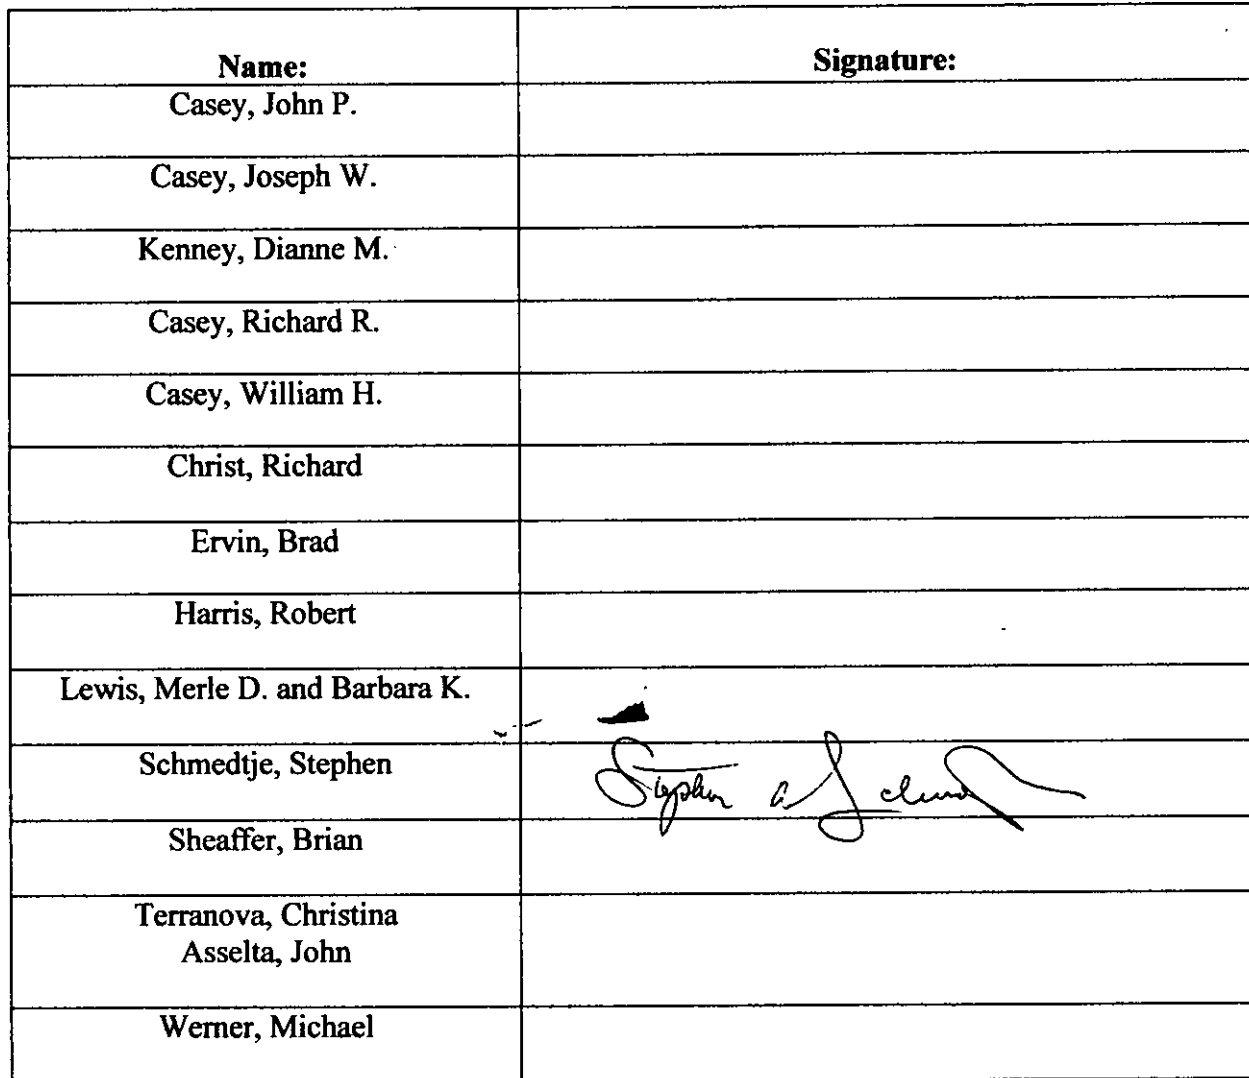 Name: Signature:
Casey, John P.
Casey, Joseph W.
Kenney, Dianne M.
Casey, Richard R.
Casey, William H.
Christ, Richard
Ervin, Brad
Harris, Robert
Lewis, Merle D. and Barbara K.
Schmedtje, Stephen Stephen A
Sheaffer, Brian
Terranova, Christina
Asselta, John
Werner, Michael